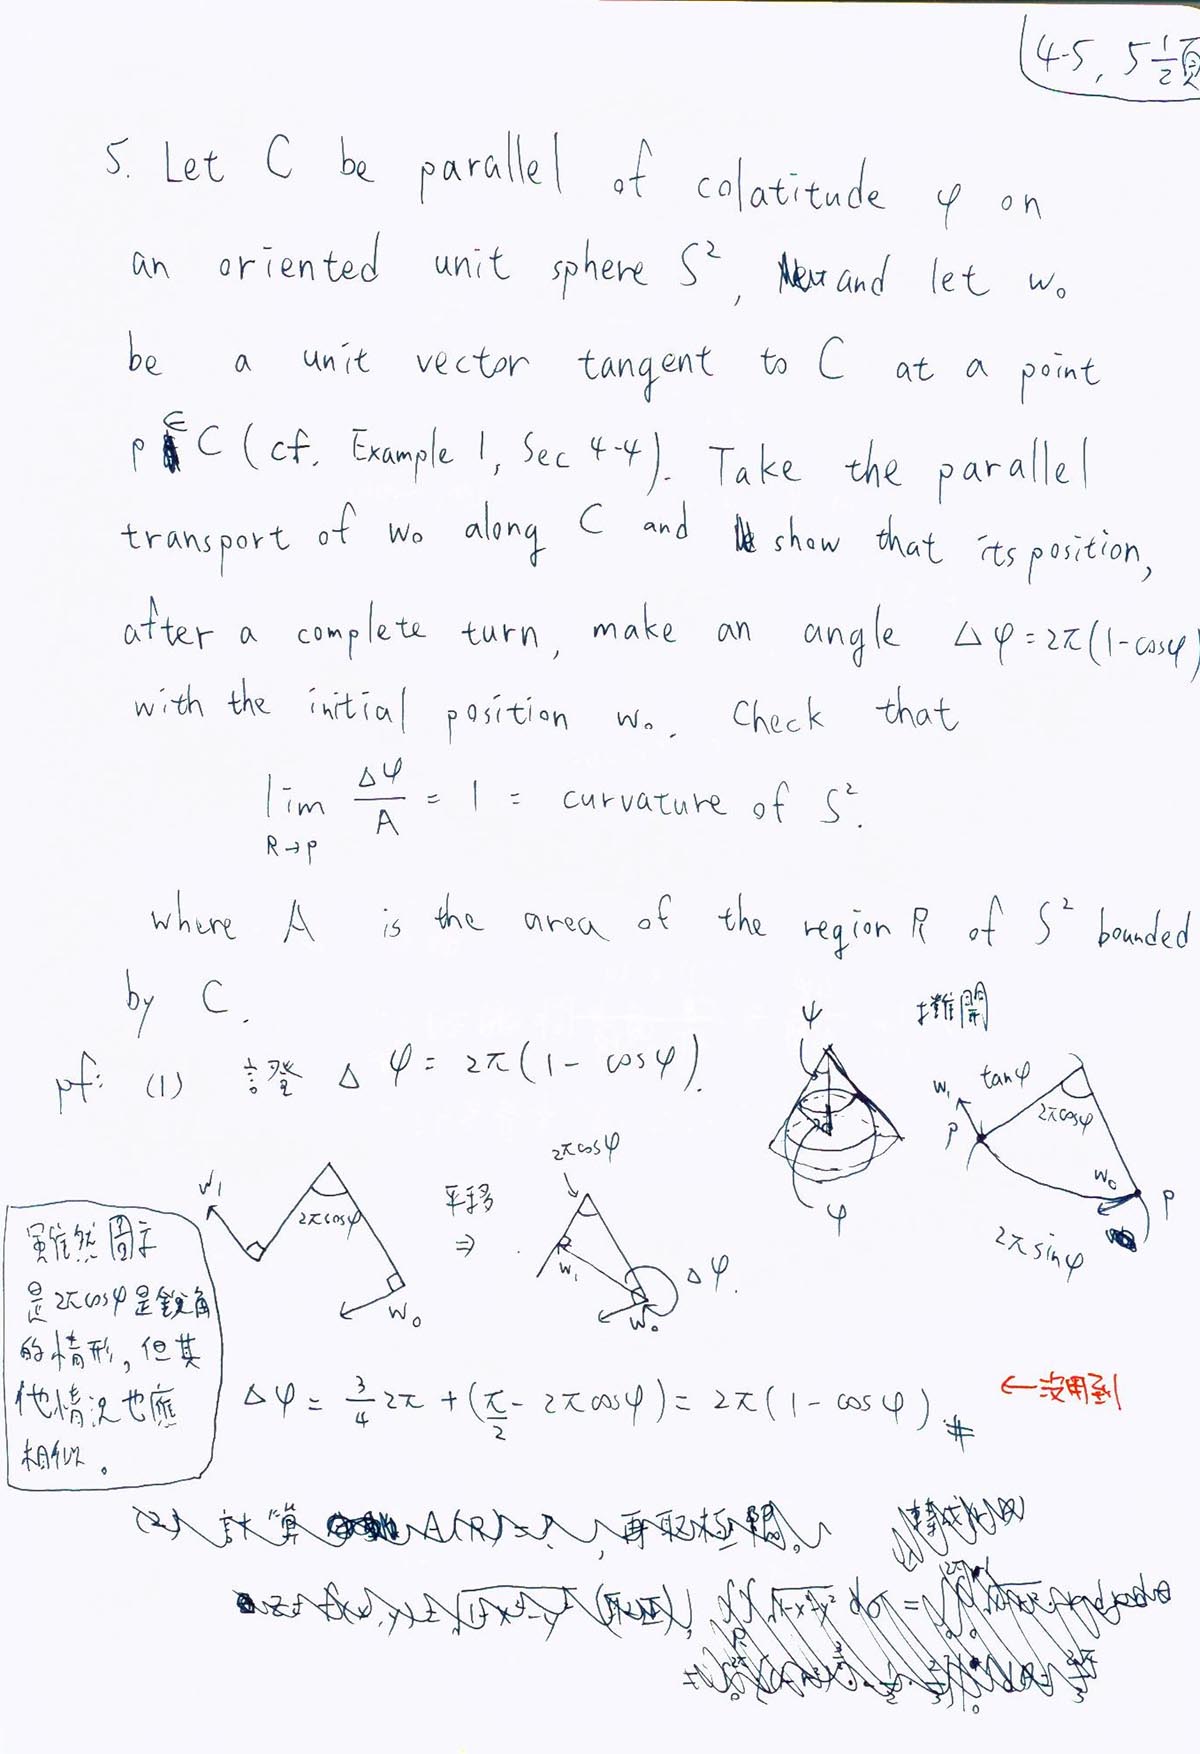 4-5, 5 1/2 頁
5. Let C be parallel of colatitude φ on
an oriented unit sphere S², and let w₀
be a unit vector tangent to C at a point
p ∈ C (cf. Example 1, Sec 4-4). Take the parallel
transport of w₀ along C and show that its position,
after a complete turn, make an angle Δφ = 2π(1-cosφ)
with the initial position w₀. Check that
lim_{R→p} Δφ/A = 1 = curvature of S².
where A is the area of the region R of S² bounded
by C.
pf: (1) 證 Δφ = 2π(1 - cosφ).
ψ
φ
攤開
w₁
tanφ
2πcosφ
p
w₀
p
2πsinφ
w₁
2πcosφ
w₀
平移
⇒
2πcosφ
w₁
Δφ.
w₀
雖然圖示
是2πcosφ是銳角
的情形, 但其
他情況也應
相似。
Δφ = 3/4 2π + (π/2 - 2πcosφ) = 2π(1 - cosφ). #
← 沒用到
(2) 計算 A(R)=?, 再取極限。